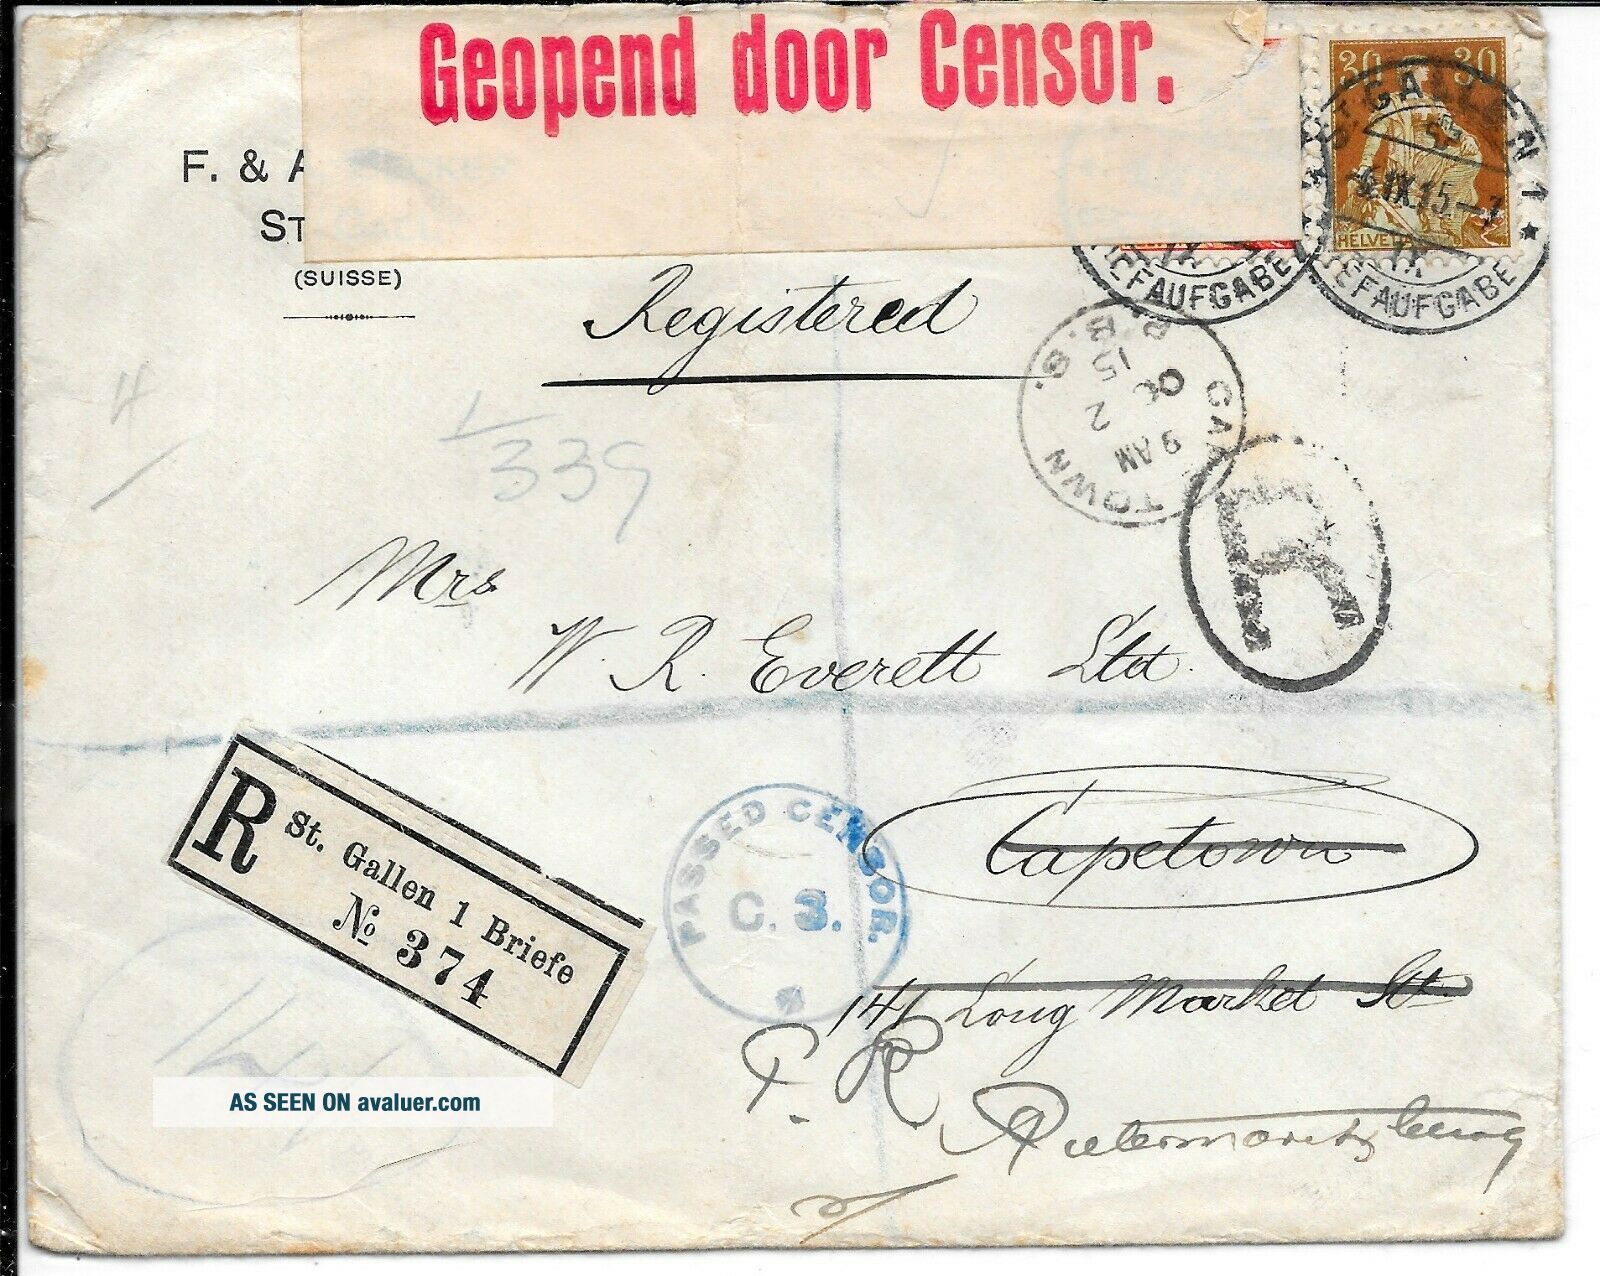 Geopend door Censor.
30 30
HELVE
ST. GALLEN 1
IX.15.
BRIEFAUFGABE
EFAUFGABE
F. & A
ST
(SUISSE)
Registered
TOWN
9 AM
2
OC
15
339
R
Mrs
W. R. Everett Ltd.
R
St. Gallen 1 Briefe
No 374
PASSED CENSOR.
C. 3.
Capetown
141 Long Market St.
Pietermaritzburg
AS SEEN ON avaluer.com